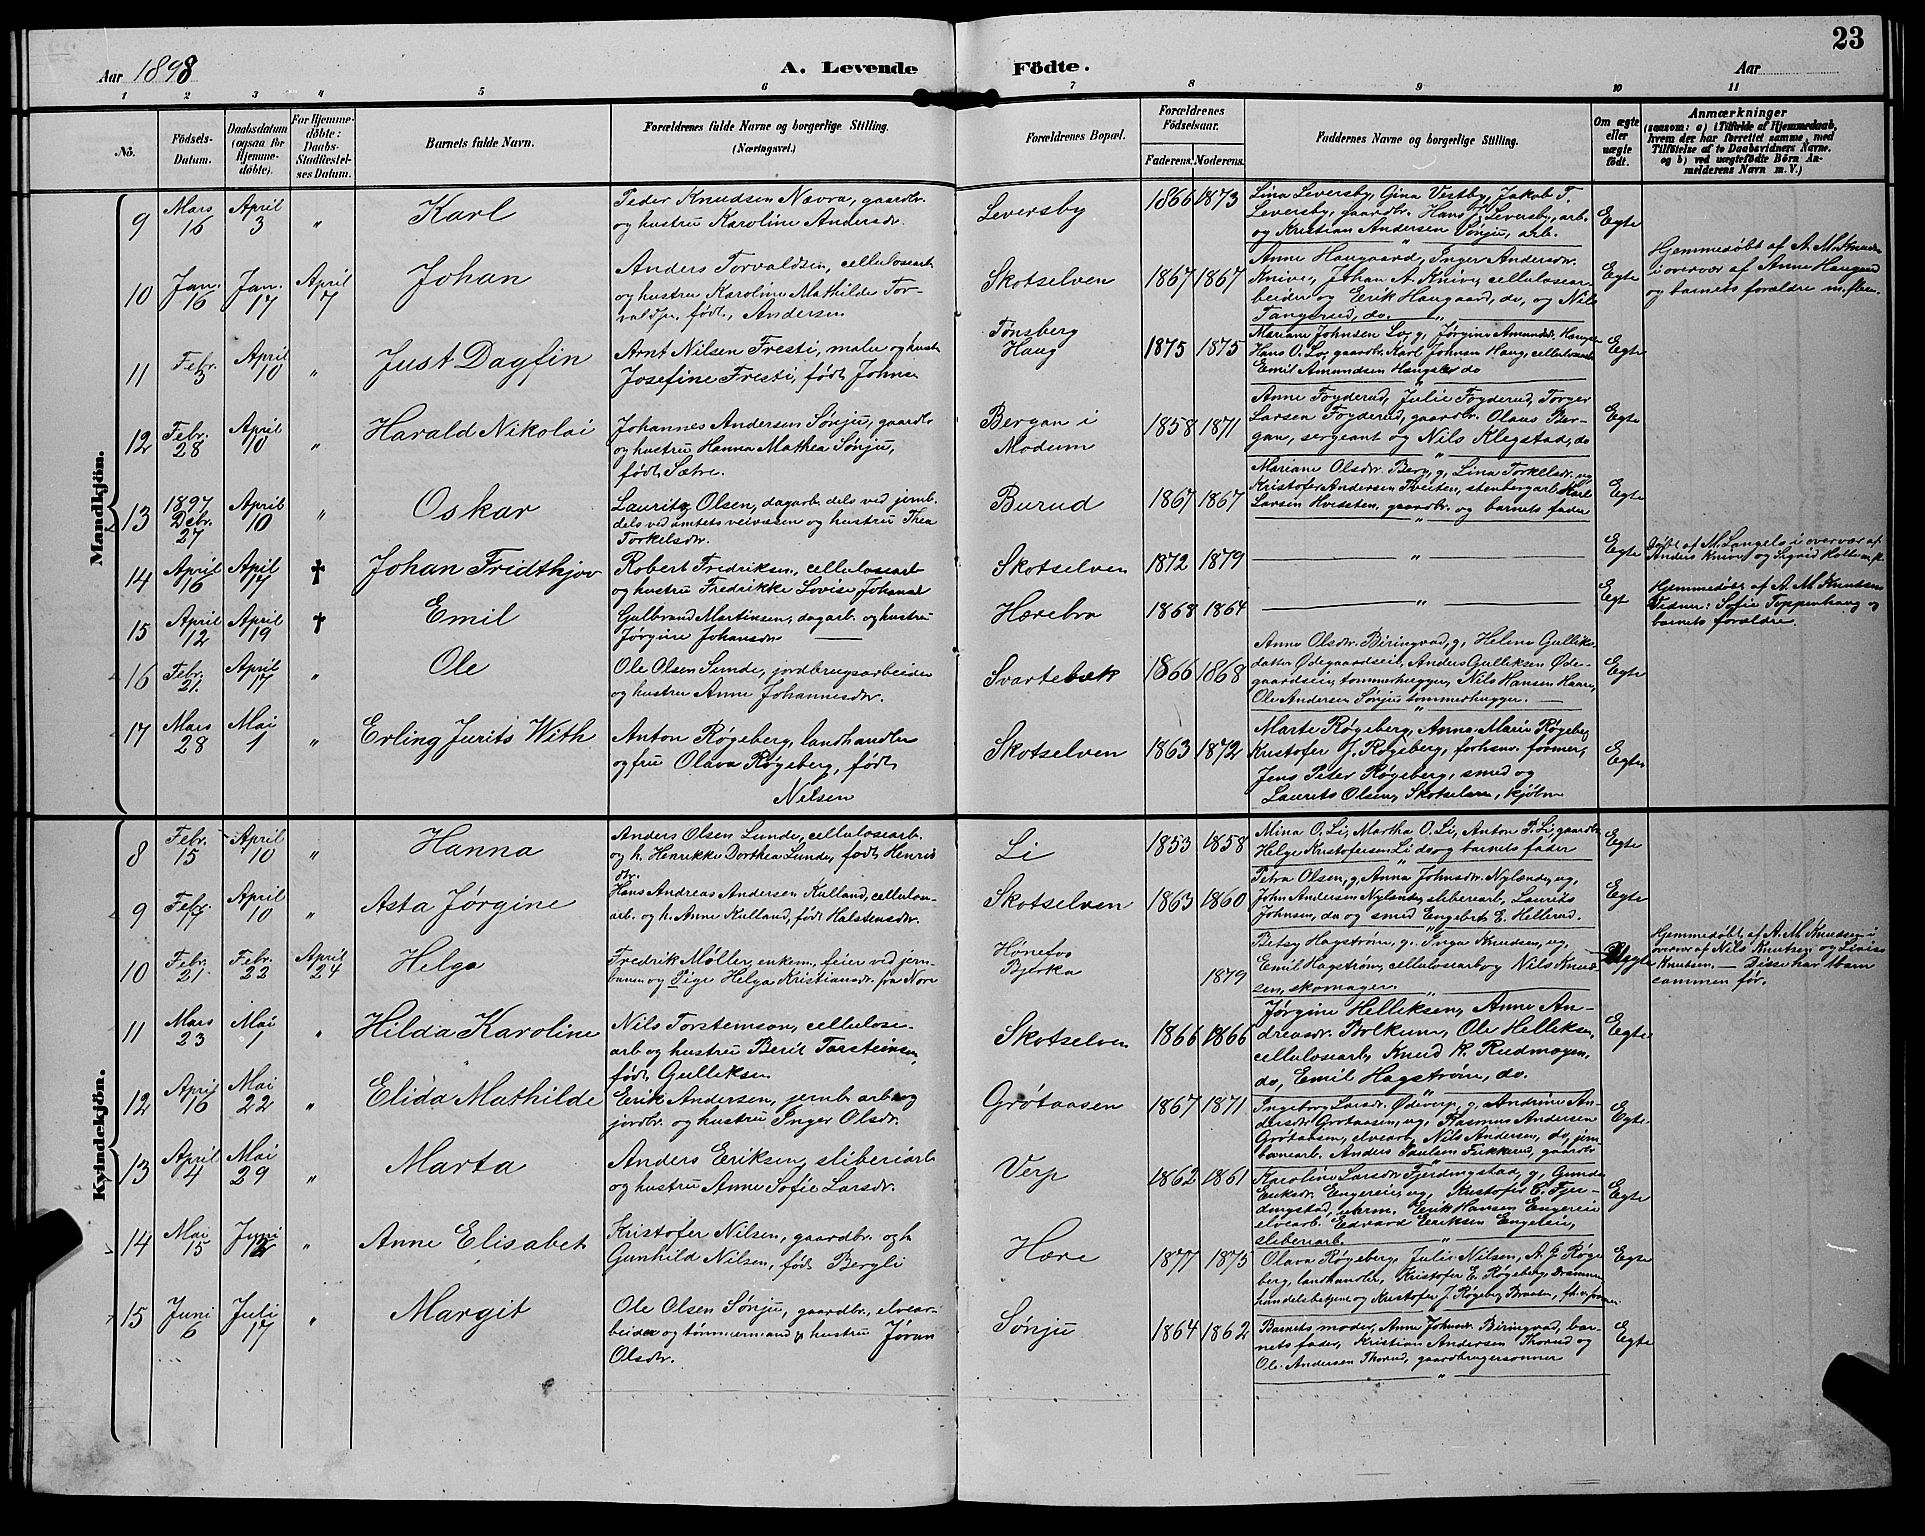 23
Aar 1898
A. Levende
Födte.
Aar
1 2 3 4 5 6 7 8 9 10 11
No.
Födsels-
Datum.
Daabsdatum
(ogsaa for
Hjemme-
døbte).
For Hjemme-
døbte:
Daabs-
Stadfæstel-
ses Datum.
Barnets fulde Navn.
Forældrenes fulde Navne og borgerlige Stilling.
(Næringsvei.)
Forældrenes Bopæl.
Forældrenes
Fødselsaar.
Faderens. Moderens.
Faddernes Navne og borgerlige Stilling.
Om ægte
eller
uægte
født.
Anmærkninger
(saasom: a) i Tilfælde af Hjemmedaab,
hvem der har forrettet samme, med
Tilføielse af to Daabsvidners Navne.
og b) ved uægtefødte Börn An-
melderens Navn m. V.)
Mandkjön.
9 Mars 16 April 3 " Karl
Peder Knudsen Nævra, gaardbr.
og hustru Karoline Andersdr.
Leversby 1866 1873
Lina Leversby, Gina Vestby, Jakob T.
Leversby, gaardbr. Hans Leversby, arb.
og Kristian Andersen Sønju, arb.
Egte
10 Jan. 16 Jan. 17 April 7 Johan
Anders Torvaldsen, cellulosearb
og hustru Karoline Mathilde Tor-
valdsn. født Andersen
Skotselven 1867 1867
Anne Haugaard, Inger Andersdr.
Knive, Johan A. Knive, cellulosear-
beider og Erik Haugaard, do, og Nils
Tangerud, do.
Egte
Hjemmedøbt af A. M. Knudsen
i overvær af Anne Haugaard
og barnets forældre m. flere.
11 Febr. 3 April 10 " Just Dagfin
Arnt Nilsen Fresti, maler og hust
Josefine Fresti, født Johns
Tønsberg
Haug
1875 1875
Hans O. Lo, gaardbr. Karl Johnsen Haug, cellulosearb
Emil Amundsen do
Egte
12 Febr. 28 April 10 " Harald Nikolai
Johannes Andersen Sønju, gaardbr
og hustru Hanna Mathea Sønju,
født Sætre.
Bergan i
Modum
1858 1871
Anne Foyderud, Julie Foyderud, Torger
Larsen Foyderud, gaardbr. Olaus Ber-
gan, sergeant og Nils Klegstad, do
Egte
13 1897 Debr. 27 April 10 " Oskar
Lauritz Olsen, dagarb. dels ved jernb.
dels ved amtets veivæsen og hustru Thea
Torkelsdr.
Burud 1867 1867
Mariane Olsdr. Berg, g, Lina Torkelsdr. ug
Kristofer Andersen Tveiten, stenbergarb. Karl
Larsen Hvidsten, gaardbr. og barnets fader
Egte
14 April 16 April 17 † Johan Fridthjov
Robert Fredriksen, cellulosearb
og hustru Fredrikke Lovise Johansd
Skotselven 1872 1879
"
Egte
Døbt af M. Langelo i overvær af
Anders Knive og Sigrid
15 April 12 April 19 † Emil
Gulbrand Martinsen, dagarb og hustru
Jørgine Johansdr.
Hærebro 1868 1864
"
Egt
Hjemmedøbt af A. M. Knudsen
Vidner: Sofie Toppenhaug og
barnets forældre.
16 Febr. 21. April 17 " Ole
Ole Olsen Lunde, jordbrugsarbeider
og hustru Anne Johannesdr.
Svartebæk 1866 1868
Anne Olsdr. Biringvad, g, Helene Gulliks-
datter Ødegaardseie, Anders Gulliksen Øde-
gaardseie, tømmerhugger, Nils Hansen Haare,
Ole Andersen Sønju tømmerhugger.
Egte
17 Mars 28 Mai 1 " Erling Jurits With
Anton Røgeberg, landhandler
og fru Olava Røgeberg, født
Nilsen
Skotselven 1863 1872
Marte Røgeberg, Anna Marie Røgeberg
Kristofer J. Røgeberg, forhenv. former,
Jens Peter Røgeberg, smed og
Laurits Olsen, Skotselven, kjøbm
Egte
Kvindekjön.
8 Febr. 15 April 10 " Hanna
Anders Olsen Lunde, cellulosearb.
og h. Henrikke Dorthea Lunde, født Henriks
dr.
Li 1853 1858
Mina O. Li, Martha O. Li, Anton P. Li, gaardbr.
Helge Kristofersen Li do og barnets fader
Egte
9 Febr. 17 April 10 " Asta Jørgine
Hans Andreas Andersen Kulland, cellulose-
arb. og h. Anne Kulland, født Halstensdr.
Skotselven 1863 1860
Petra Olsen, g, Anna Johnsdr. Nylende, ug,
John Andersen Nylende, sliberiarb, Laurits
Johnsen, do og smed Engebret E. Hellerud.
Egte
10 Febr. 21 Febr. 22 April 24 Helga
Fredrik Møller, enkem, feier ved jern-
banen og Pige Helga Kristiansdr. fra Nore
Hønefos
Bjerka
1879
Betsy Hagstrøm, g. Inga Knudsen, ug,
Emil Hagstrøm, cellulosearb og Nils Knud-
sen, skomager.
Uegte
Hjemmedøbt af A. M. Knudsen i
overvær af Nils Knutsen og Lovise
Knutsen. — Disse har 1 barn
sammen før.
11 Mars 23 Mai 1 " Hilda Karoline
Nils Torsteinson, cellulose-
arb og hustru Berit Torsteinsen,
født Gulliksen
Skotselven 1866 1866
Jørgine Helliksen, Anne An-
dreasdr. Bolkum, Ole Helliksen,
cellulosearb, Knud K. Rudmoyen,
do, Emil Hagstrøm, do.
Egte
12 April 16 Mai 22 " Elida Mathilde
Erik Andersen, jernb arb og
jordbr. og hustru Inger Olsdr.
Grøtaasen 1867 1871
Ingeborg Larsdr. Ødeverp, g, Andrine An-
dersdr Grøtaasen, ug, Rasmus Andersen
Grøtaasen, elvearb, Nils Andersen, do, jern-
banearb. Anders Paulsen Fukkerud, gaardbr
Egte
13 April 4 Mai 29 " Marta
Anders Eriksen, sliberiarb
og hustru Anne Sofie Larsdr.
Verp 1862 1861
Karoline Larsdr Fjerdingstad, g, Gunda
Eriksdr. Engereie, ug, Kristofer C. Fjer-
dingstad, Erik Hansen Engereie
elvearb. Edvard Eriksen Engereie,
sliberiarb.
Egte
14 Mai 15 Juni 12 " Anne Elisabet
Kristofer Nilsen, gaardbr. og h
Gunhild Nilsen, født Bergli
Hære 1877 1875
Olava Røgeberg, Julie Nilsen, A. G. Røge
berg, landhandler, Kristofer E. Røgeberg, Drammen
handelsbetjent og Kristofer J. Røgeberg Braaten,
Egte
15 Juni 6 Juli 17 " Margit
Ole Olsen Sønju, gaardbr., elvear-
beider og tømmermand og hustru Jøran
Olsdtr.
Sønju 1864 1862
Barnets moder, Anne Johnsdr. Biringvad, bar-
nets fader, Kristian Andersen Thorud og
Ole Andersen Thorud, gaardbrugersønner
Egte